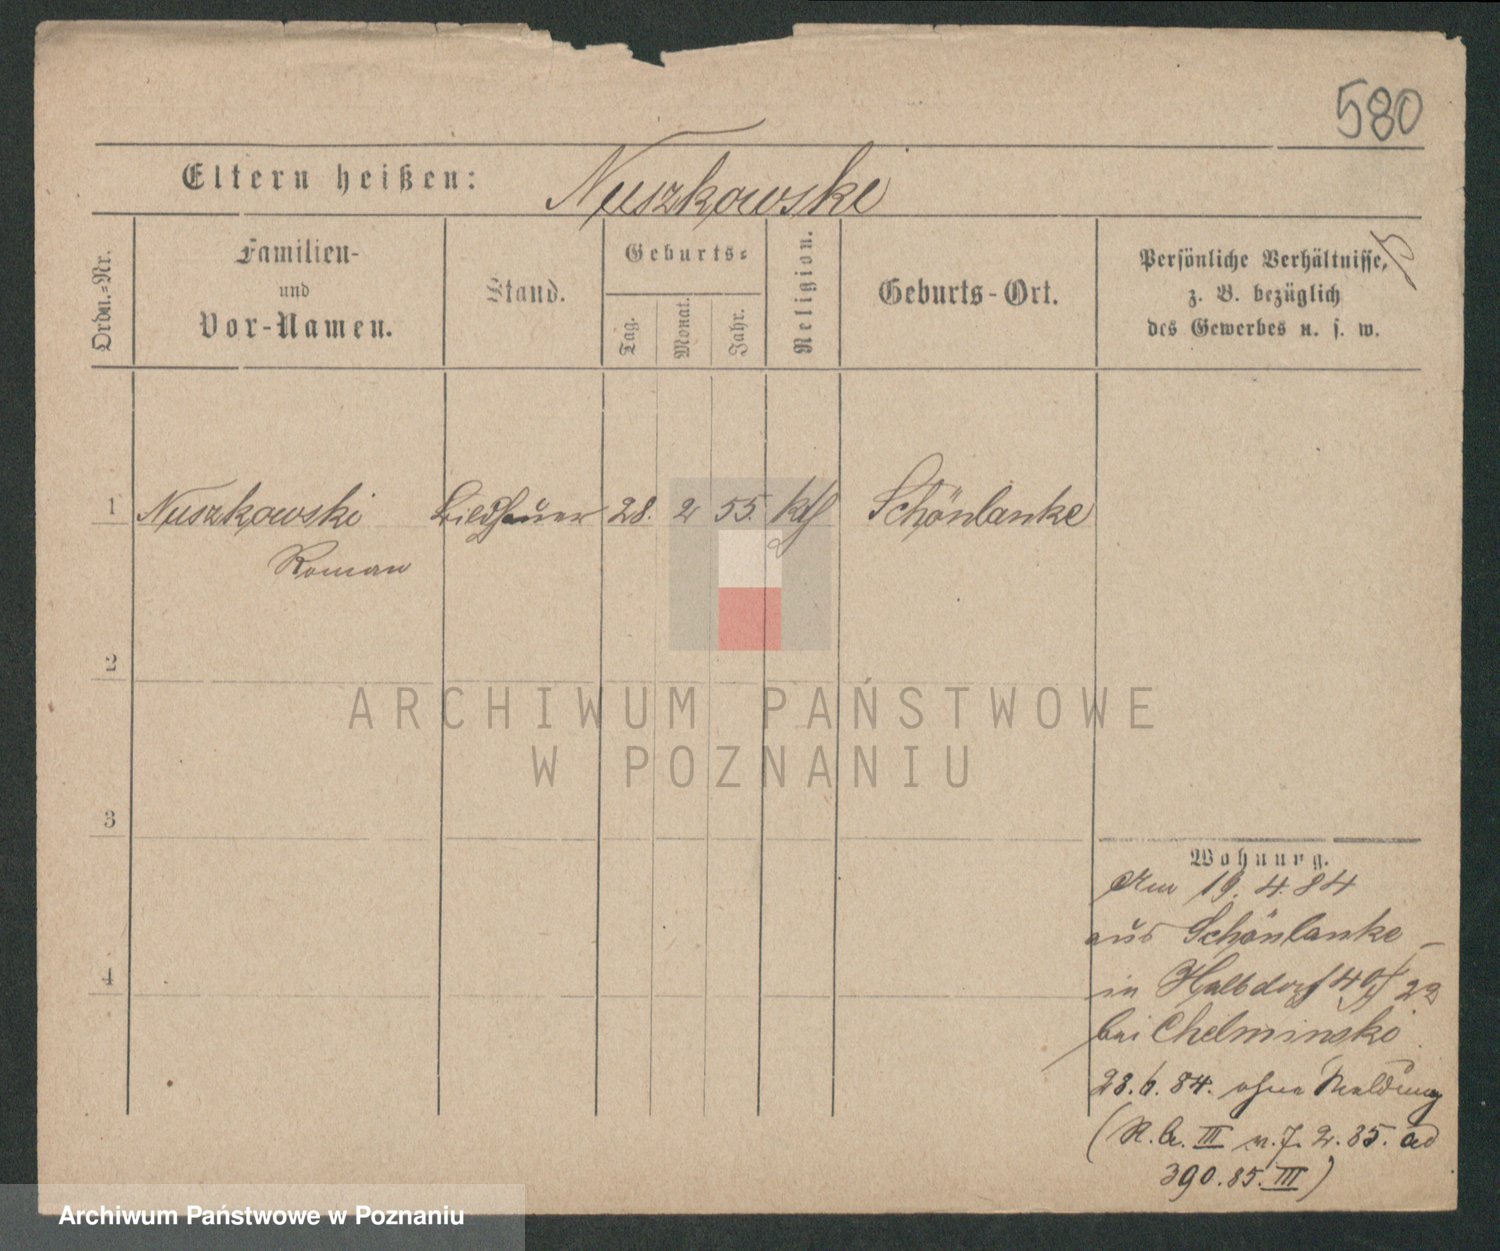 580
Eltern heißen: Nuszkowski
Ordn.-Nr.
Familien-
und
Vor-Namen.
Stand.
Geburts-
Tag.
Monat.
Jahr.
Religion.
Geburts-Ort.
Persönliche Verhältnisse,
z. B. bezüglich
des Gewerbes u. s. w.
1 Nuszkowski Bildhauer 28. 2 55. kth Schönlanke
Roman
2
3
4
Wohnung.
Am 19. 4. 84
aus Schönlanke
in Halbdorf 22
bei Chelminski
28. 6. 84. ohne Meldung
(R. b. III v. 7. 2. 85. ad
390. 85. III)
ARCHIWUM PAŃSTWOWE
W POZNANIU
Archiwum Państwowe w Poznaniu